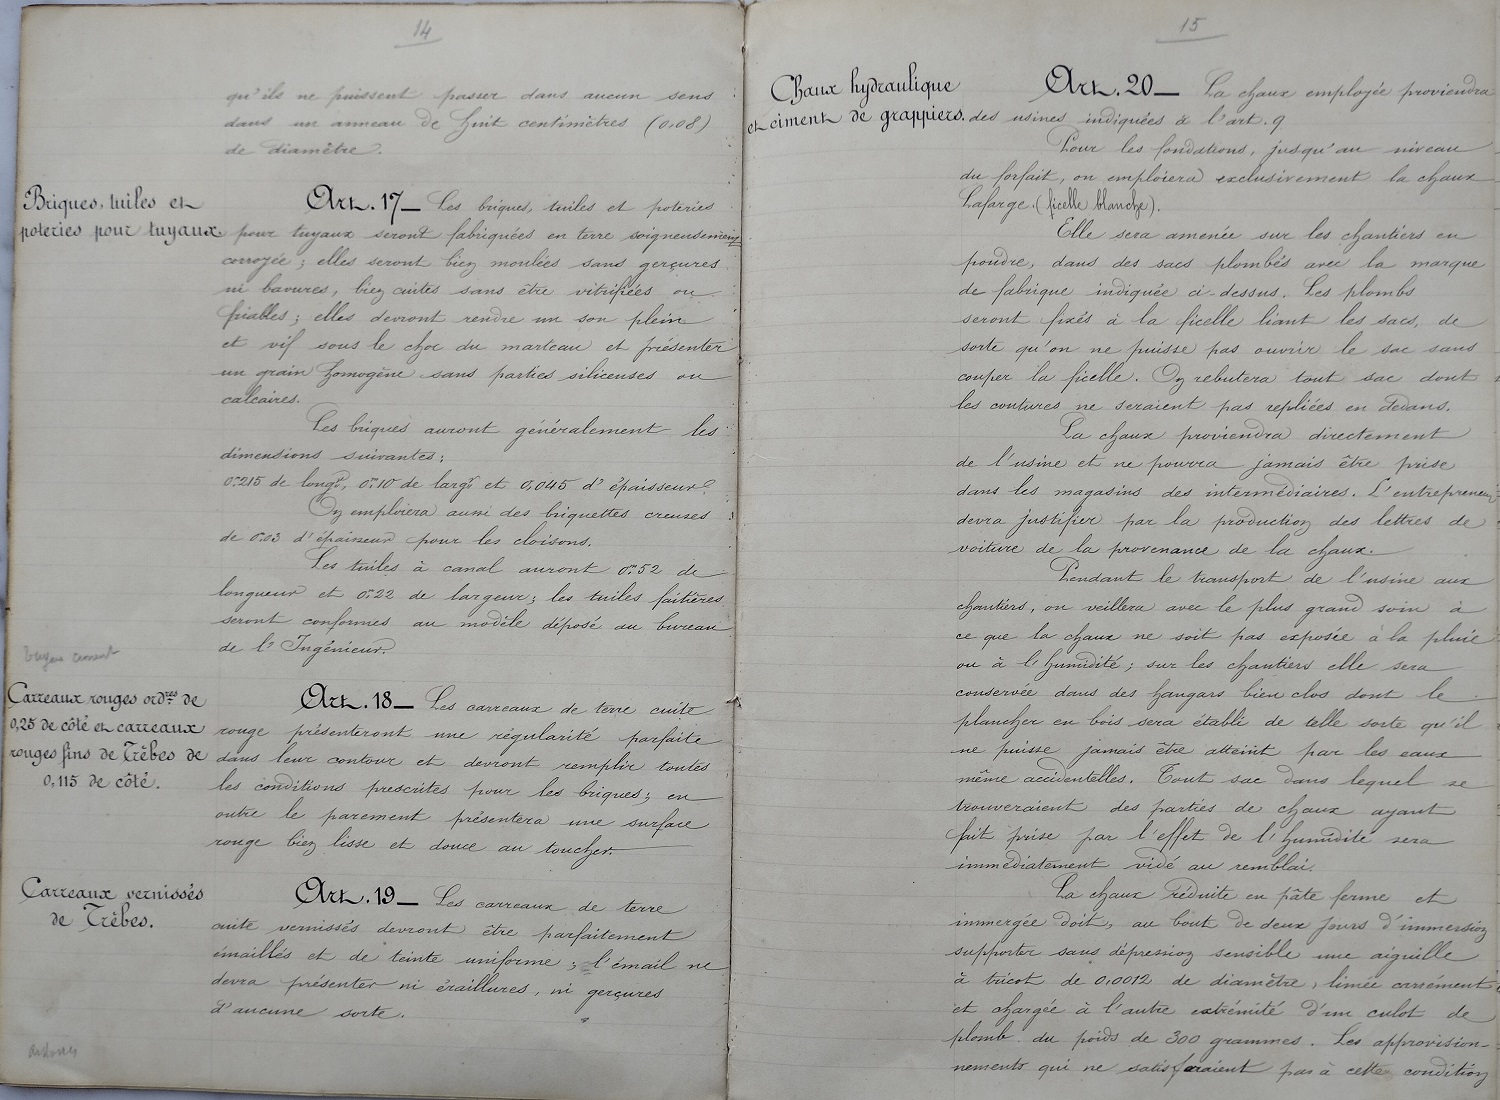 14
qu'ils ne puissent passer dans aucun sens
dans un anneau de huit centimètres (0,08)
de diamètre.
Briques, tuiles et
poteries pour tuyaux
Art. 17 — Les briques, tuiles et poteries
pour tuyaux seront fabriquées en terre soigneusement
corroyée ; elles seront bien moulées sans gerçures
ni bavures, bien cuites sans être vitrifiées ou
friables ; elles devront rendre un son plein
et vif sous le choc du marteau et présenter
un grain homogène sans parties siliceuses ou
calcaires.
Les briques auront généralement les
dimensions suivantes ;
0m215 de longr, 0m10 de largr et 0,045 d'épaisseur.
On emploiera aussi des briquettes creuses
de 0,03 d'épaisseur pour les cloisons.
Les tuiles à canal auront 0m52 de
longueur et 0m22 de largeur ; les tuiles faîtières
seront conformes au modèle déposé au bureau
de l'Ingénieur.
ciment
Carreaux rouges ordres de
0,25 de côté et carreaux
rouges fins de Trèbes de
0,115 de côté.
Art. 18 — Les carreaux de terre cuite
rouge présenteront une régularité parfaite
dans leur contour et devront remplir toutes
les conditions prescrites pour les briques ; en
outre le parement présentera une surface
rouge bien lisse et douce au toucher.
Carreaux vernissés
de Trèbes.
Art. 19 — Les carreaux de terre
cuite vernissés devront être parfaitement
émaillés et de teinte uniforme ; l'émail ne
devra présenter ni éraillures, ni gerçures
d'aucune sorte.
15
Chaux hydraulique
et ciment de grappiers.
Art. 20 — La chaux employée proviendra
des usines indiquées à l'art. 9
Pour les fondations, jusqu'au niveau
du forfait, on emploiera exclusivement la chaux
Lafarge. (ficelle blanche).
Elle sera amenée sur les chantiers en
poudre, dans des sacs plombés avec la marque
de fabrique indiquée ci-dessus. Les plombs
seront fixés à la ficelle liant les sacs, de
sorte qu'on ne puisse pas ouvrir le sac sans
couper la ficelle. On rebutera tout sac dont
les coutures ne seraient pas repliées en dedans.
La chaux proviendra directement
de l'usine et ne pourra jamais être prise
dans les magasins des intermédiaires. L'entrepreneur
devra justifier par la production des lettres de
voiture de la provenance de la chaux.
Pendant le transport de l'usine aux
chantiers, on veillera avec le plus grand soin à
ce que la chaux ne soit pas exposée à la pluie
ou à l'humidité ; sur les chantiers elle sera
conservée dans des hangars bien clos dont le
plancher en bois sera établi de telle sorte qu'il
ne puisse jamais être atteint par les eaux
même accidentelles. Tout sac dans lequel se
trouveraient des parties de chaux ayant
fait prise par l'effet de l'humidité sera
immédiatement vidé au remblai.
La chaux réduite en pâte ferme et
immergée doit, au bout de deux jours d'immersion
supporter sans dépression sensible une aiguille
à tricot de 0,0012 de diamètre, limée carrément
et chargée à l'autre extrémité d'un culot de
plomb du poids de 300 grammes. Les approvision-
nements qui ne satisferaient pas à cette condition